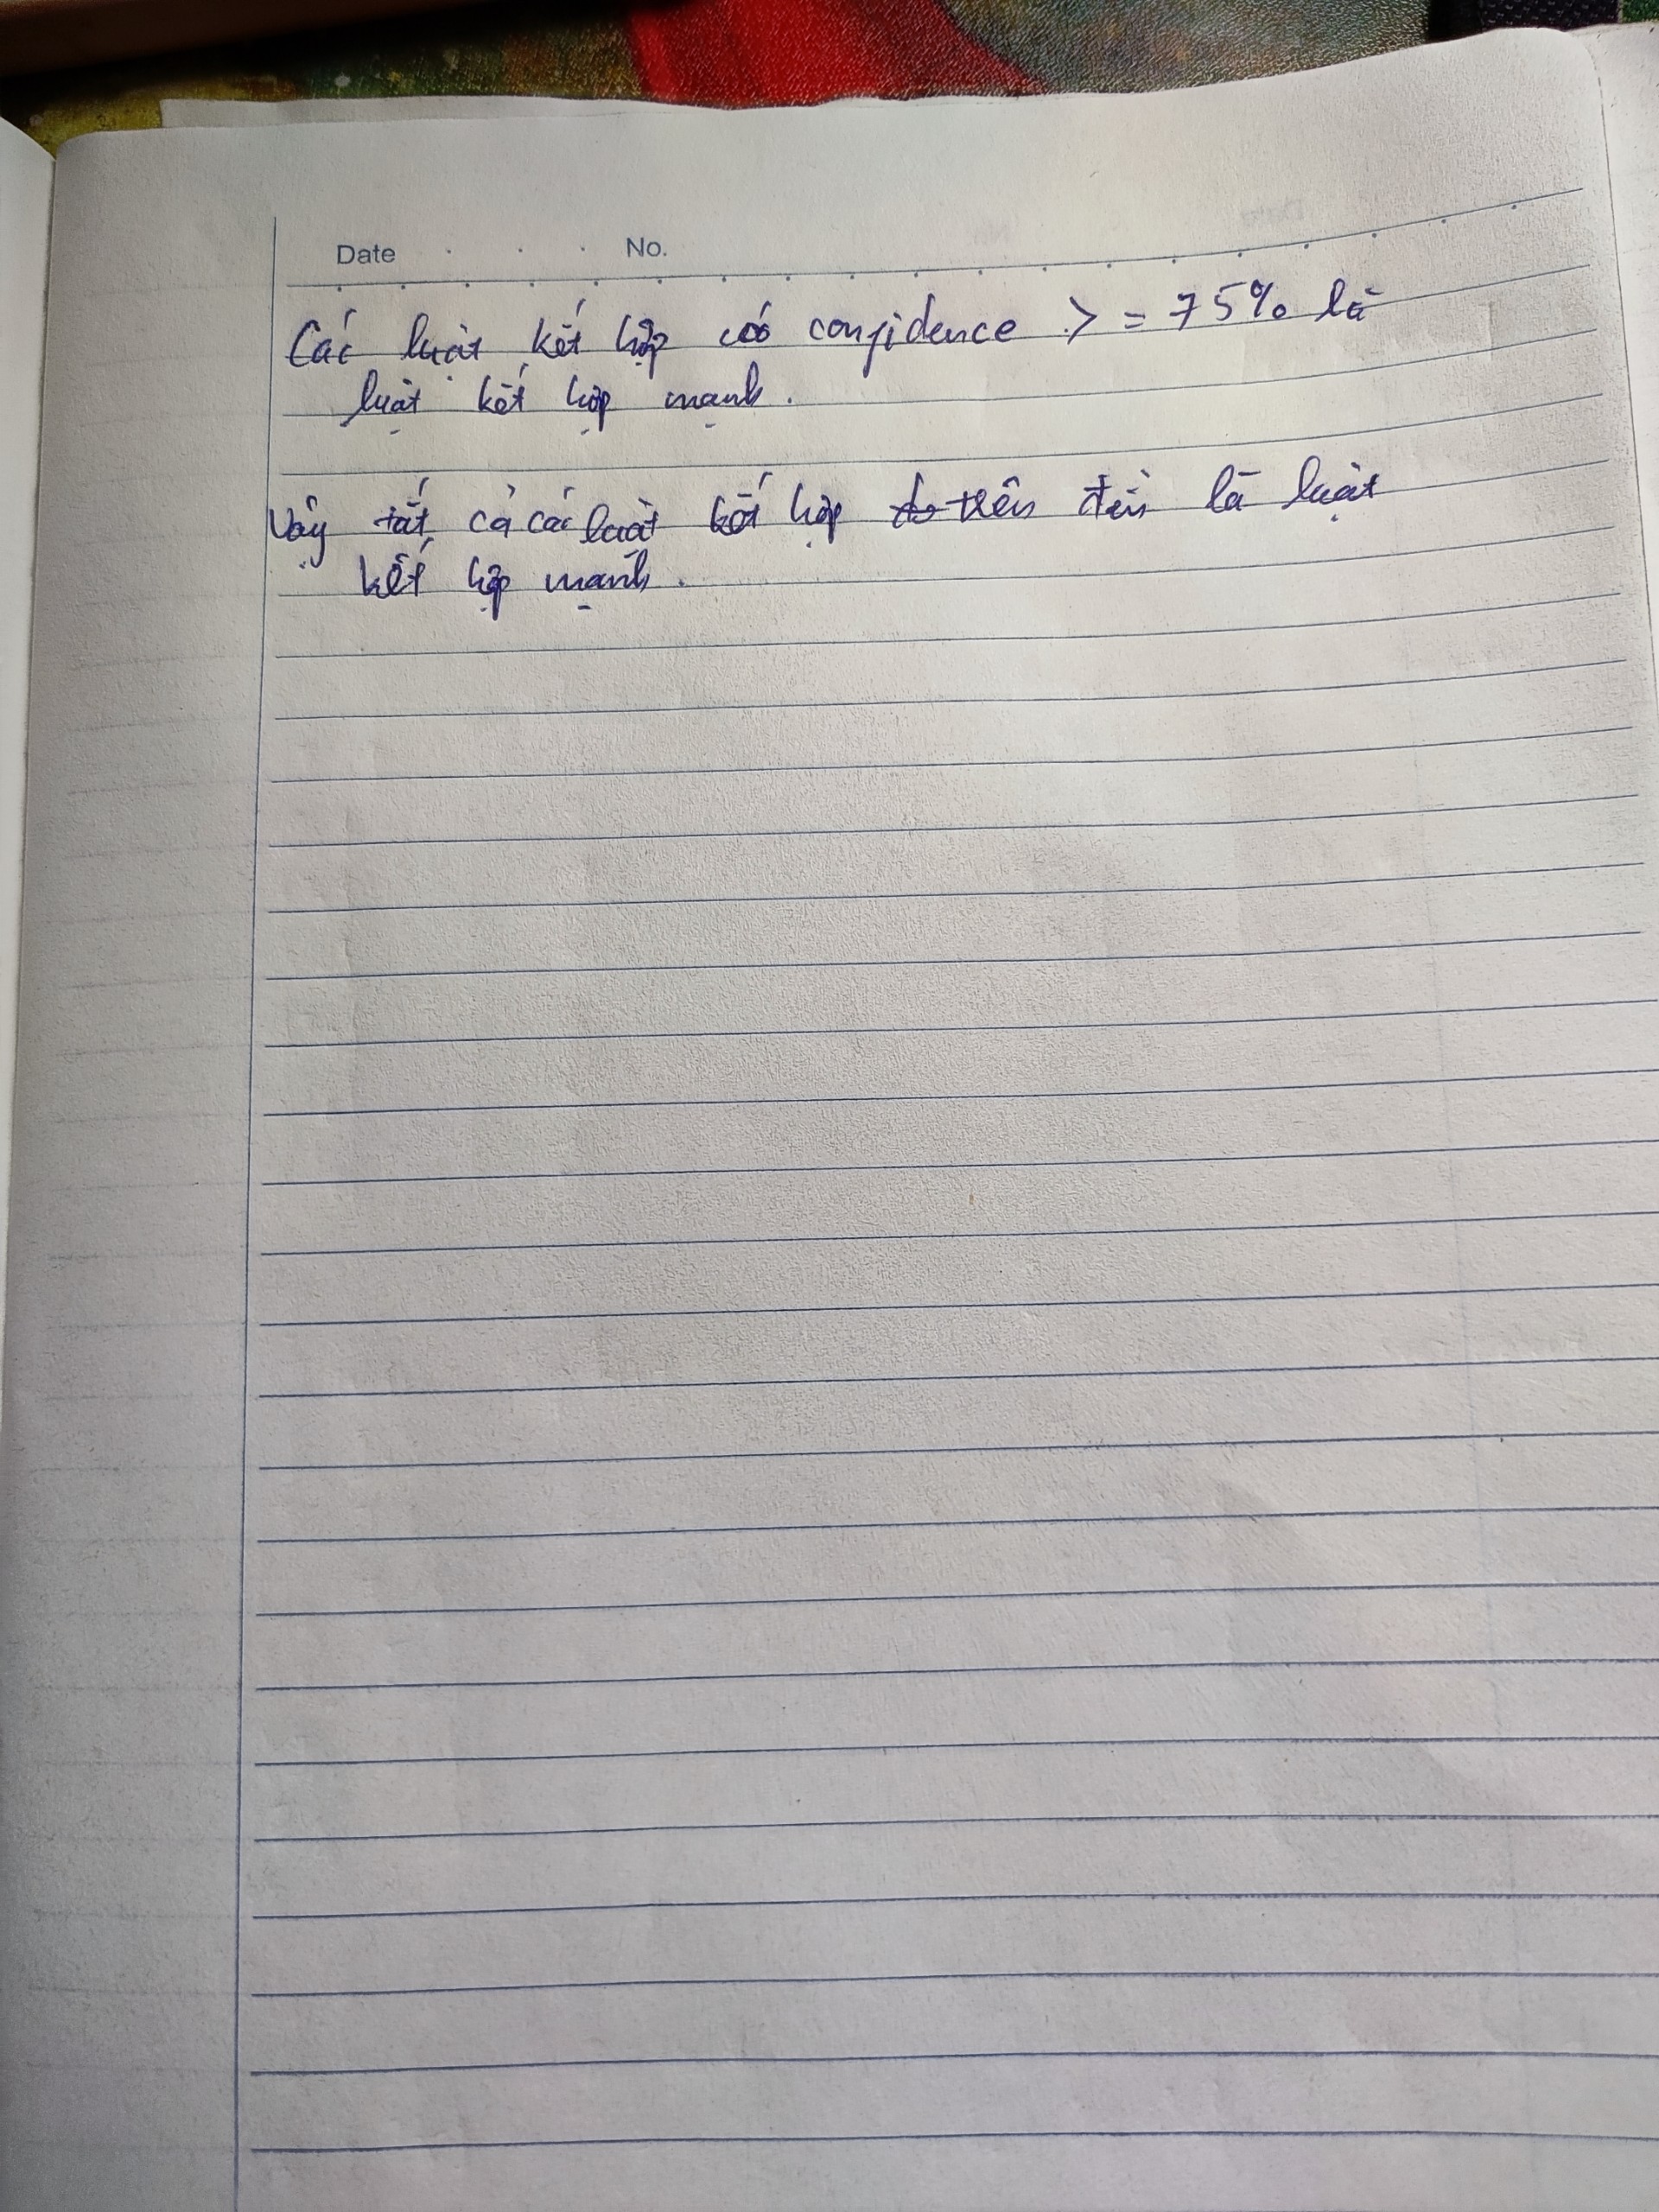 Date No.
Các luật kết hợp có confidence >= 75% là
luật kết hợp mạnh.
Vậy tất cả các luật kết hợp trên đều là luật
kết hợp mạnh.